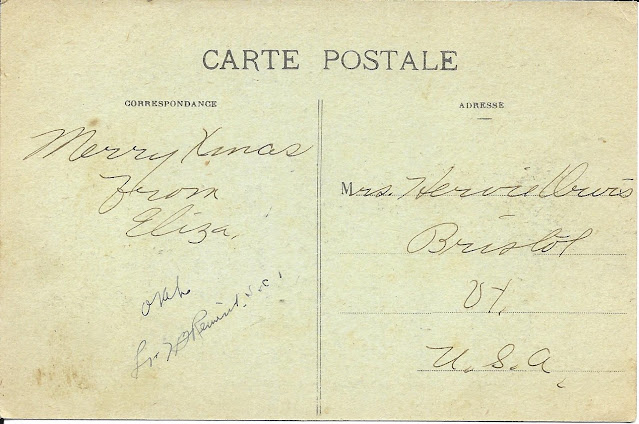 CARTE POSTALE
CORRESPONDANCE
Merry Xmas
from
Eliza.
ADRESSE
Mrs. Hervie Orvis
Bristol
Vt.
U.S.A.